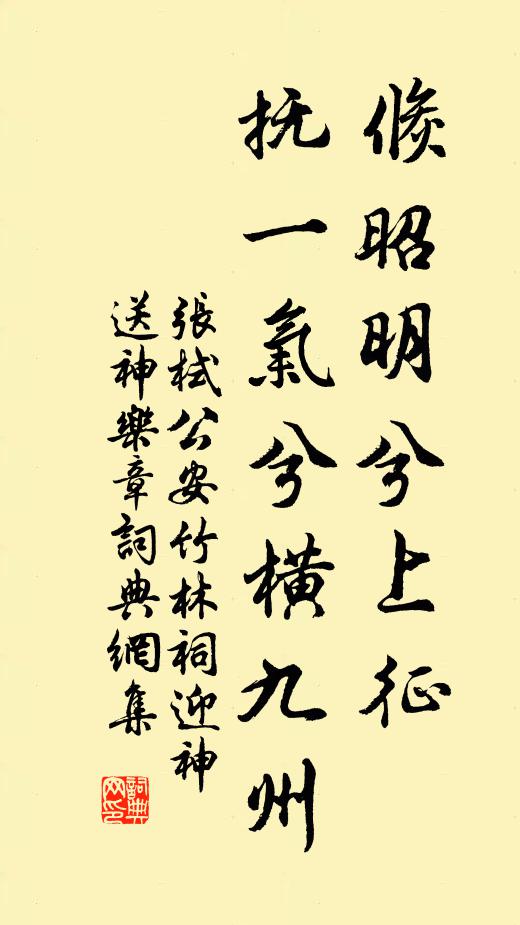 倐昭明兮上征
抚一氣兮橫九州
張栻公安竹林祠迎神
送神樂章詞典網集
詞典网印